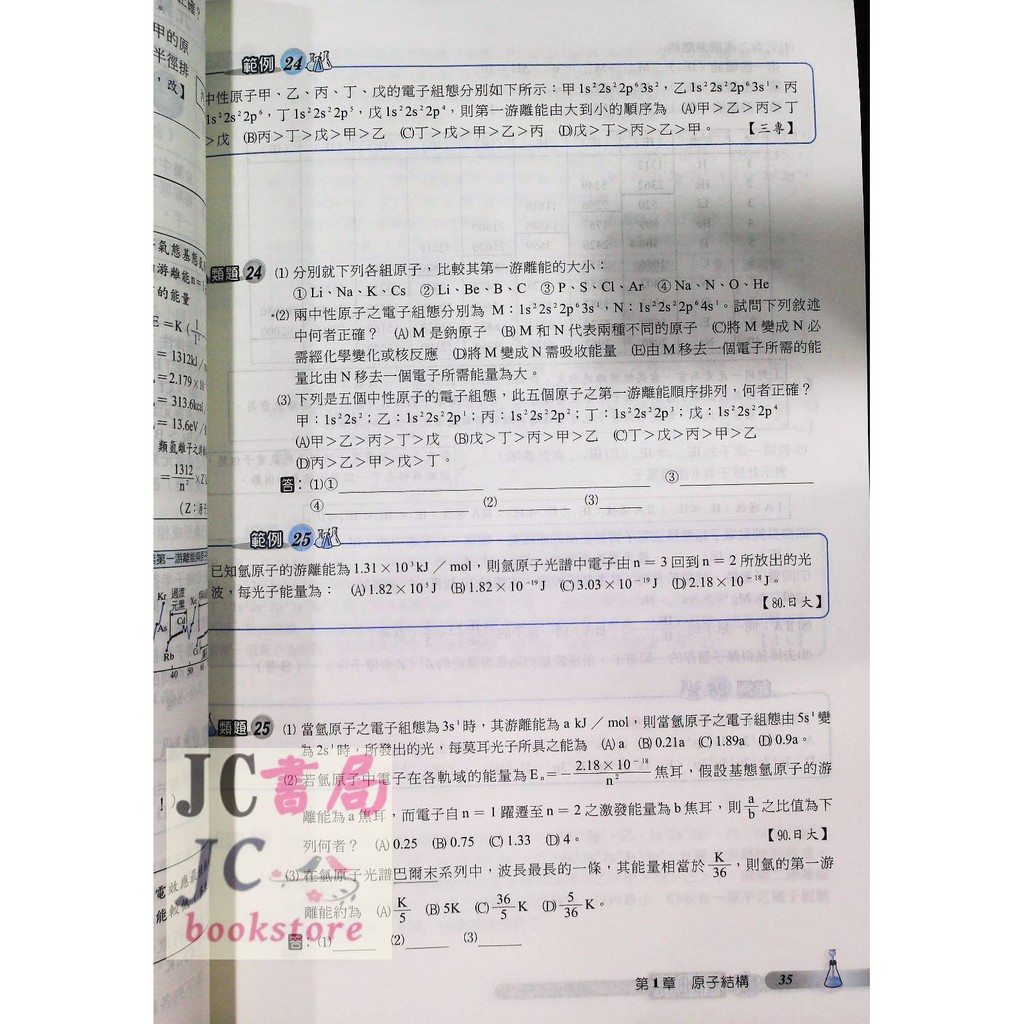 正確?
甲的原
半徑排
,改】
範例 24
中性原子甲、乙、丙、丁、戊的電子組態分別如下所示:甲1s²2s²2p⁶3s²,乙1s²2s²2p⁶3s¹,丙
1s²2s²2p⁶,丁1s²2s²2p⁵,戊1s²2s²2p⁴,則第一游離能由大到小的順序為 (A)甲>乙>丙>丁
>戊 (B)丙>丁>戊>甲>乙 (C)丁>戊>甲>乙>丙 (D)戊>丁>丙>乙>甲。 【三專】
氣態基態氫
游離能n=1
的能量
E=K(1/1²
=1312kJ/m
=2.179×10
=313.6kcal
=13.6eV/
類氫離子之游
=1312/n²×Z
(Z:原子
類題 24 (1) 分別就下列各組原子,比較其第一游離能的大小:
①Li、Na、K、Cs ②Li、Be、B、C ③P、S、Cl、Ar ④Na、N、O、He
(2) 兩中性原子之電子組態分別為 M:1s²2s²2p⁶3s¹,N:1s²2s²2p⁶4s¹。試問下列敘述
中何者正確? (A)M是鈉原子 (B)M和N代表兩種不同的原子 (C)將M變成N必
需經化學變化或核反應 (D)將M變成N需吸收能量 (E)由M移去一個電子所需的能
量比由N移去一個電子所需能量為大。
(3) 下列是五個中性原子的電子組態,此五個原子之第一游離能順序排列,何者正確?
甲:1s²2s²;乙:1s²2s²2p¹;丙:1s²2s²2p²;丁:1s²2s²2p³;戊:1s²2s²2p⁴
(A)甲>乙>丙>丁>戊 (B)戊>丁>丙>甲>乙 (C)丁>戊>丙>甲>乙
(D)丙>乙>甲>戊>丁。
答:(1)① ② ③
④ (2) (3)
範例 25
已知氫原子的游離能為1.31×10³kJ/mol,則氫原子光譜中電子由n=3回到n=2所放出的光
波,每光子能量為: (A)1.82×10⁵J (B)1.82×10⁻¹⁹J (C)3.03×10⁻¹⁹J (D)2.18×10⁻¹⁸J。
【80.日大】
第一游離能與
Kr 過渡元素 Xe
As Cd
Rb
40 50
類題 25 (1) 當氫原子之電子組態為3s¹時,其游離能為a kJ/mol,則當氫原子之電子組態由5s¹變
為2s¹時,所發出的光,每莫耳光子所具之能為 (A)a (B)0.21a (C)1.89a (D)0.9a。
(2) 若氫原子中電子在各軌域的能量為Eₙ=-2.18×10⁻¹⁸/n² 焦耳,假設基態氫原子的游
離能為a焦耳,而電子自n=1躍遷至n=2之激發能量為b焦耳,則a/b之比值為下
列何者? (A)0.25 (B)0.75 (C)1.33 (D)4。 【90.日大】
(3) 在氫原子光譜巴爾末系列中,波長最長的一條,其能量相當於K/36,則氫的第一游
離能約為 (A)K/5 (B)5K (C)36/5 K (D)5/36 K。
答:(1) (2) (3)
JC書局
JC
bookstore
第1章 原子結構 35